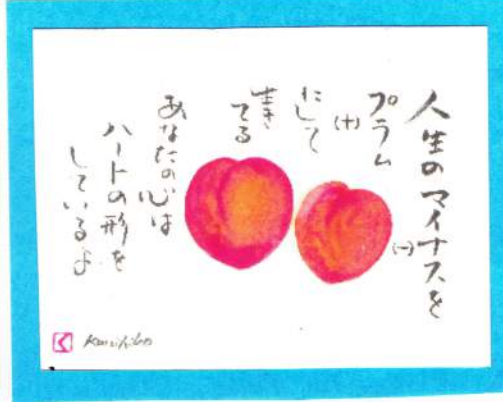 人生のマイナスを
(−)
プラム
(+)
にして
生きてる
あなたの心は
ハートの形を
しているよ
く